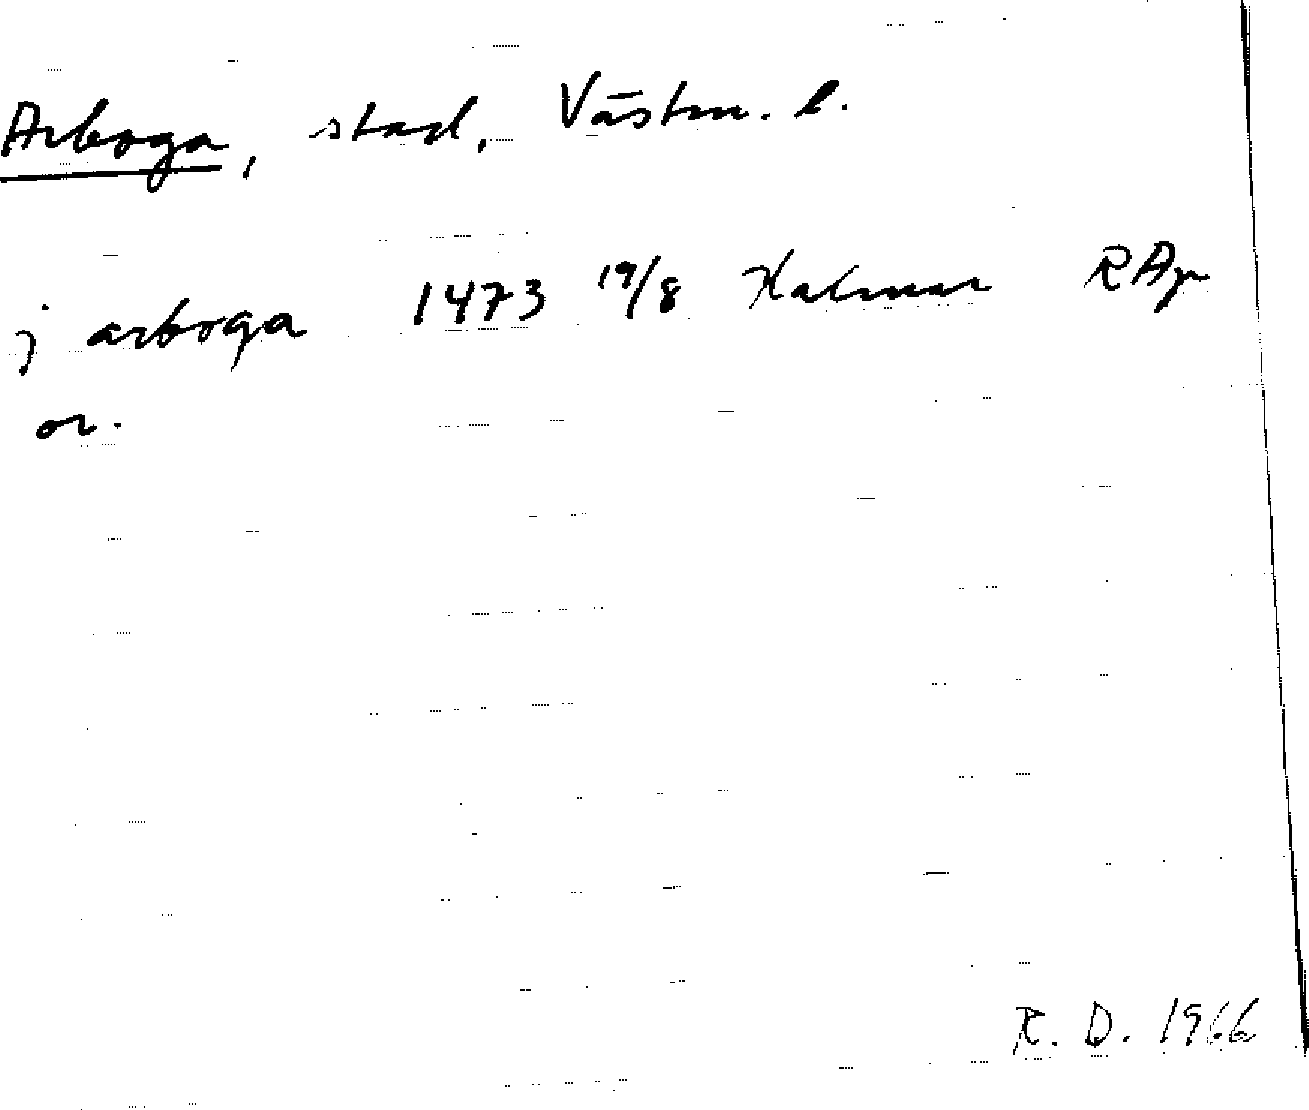 Arboga, stad, Västm. l.
j arboga 1473 19/8 Kalmar RAp
or.
R. D. 1966